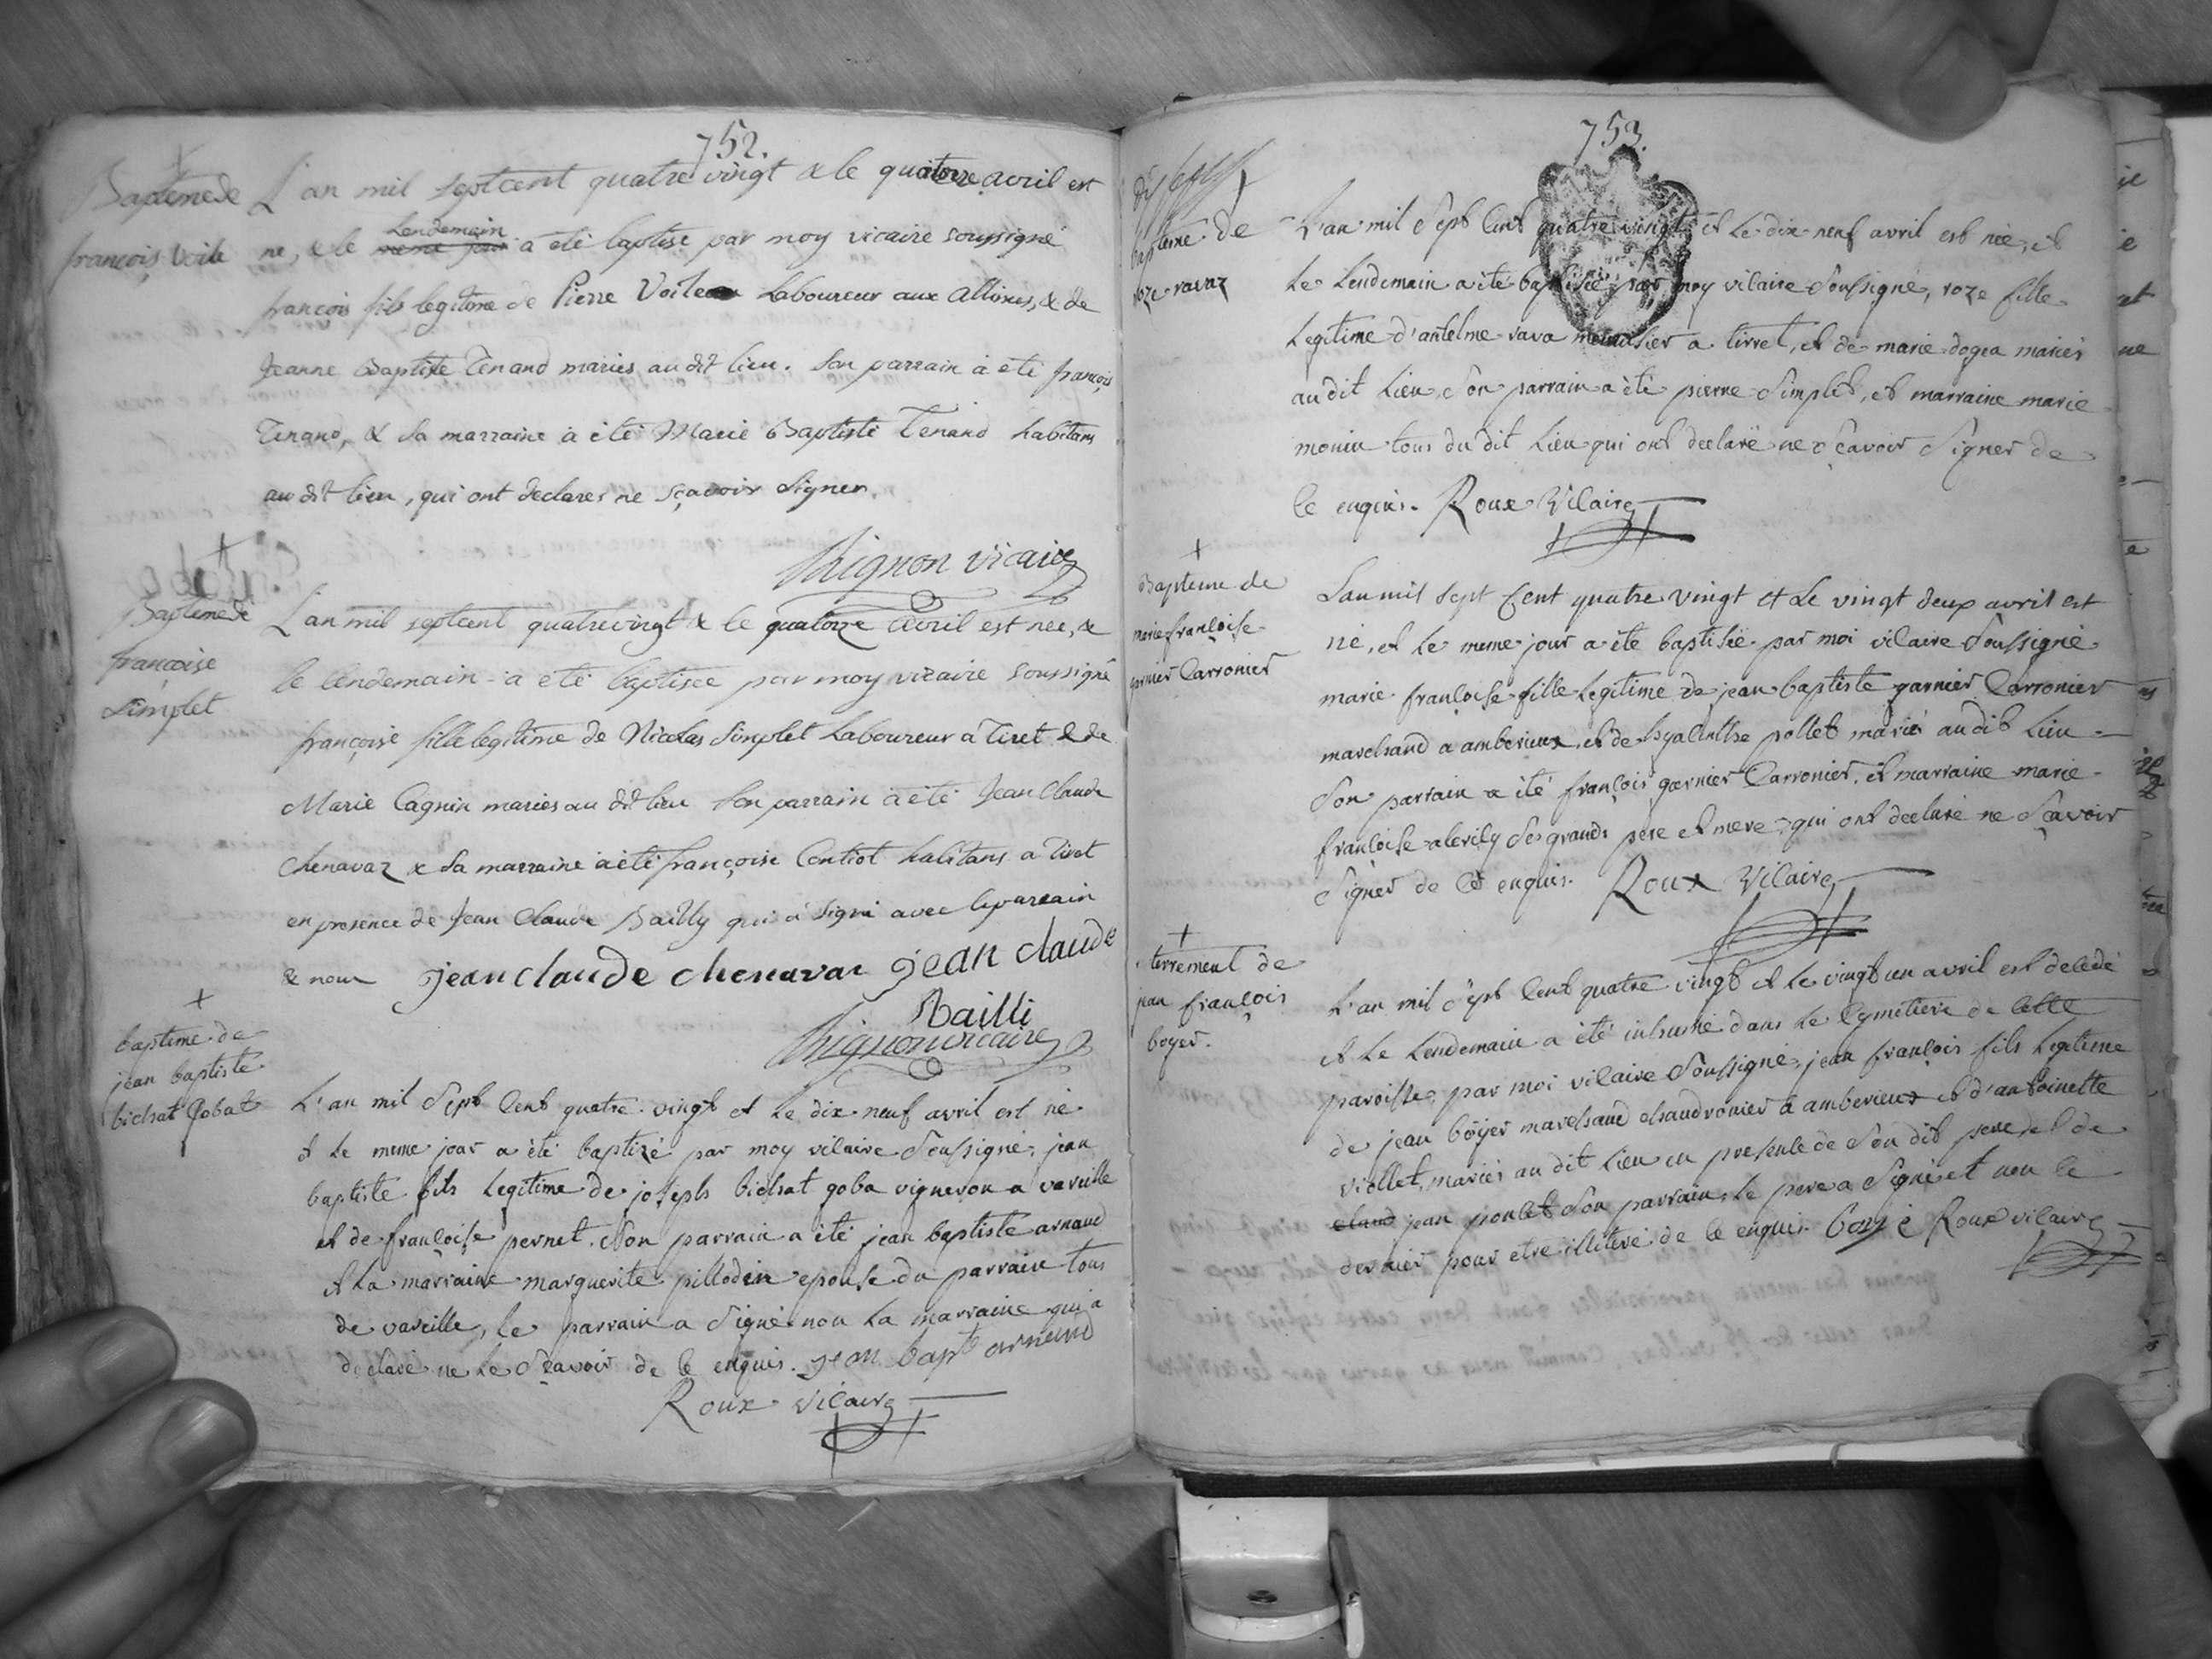 752.
Baptême de
françois Voile
L'an mil septcent quatre vingt & le quatorze avril est
né, & le Lendemain même jour à été baptisé par moy vicaire soussigné
françois fils legitime de Pierre Voile Laboureur aux Allimes, & de
Jeanne Baptiste Tenand mariés au dit lieu. Son parrain à été françois
Tenand, & sa marraine à été Marie Baptiste Tenand habitans
au dit lieu, qui ont declarés ne sçavoir signer.
Mignon vicaire
Baptême de
françoise
Simplet
L'an mil septcent quatrevingt & le quatorze avril est née, &
le lendemain à été baptisée par moy vicaire soussigné
françoise fille legitime de Nicolas Simplet Laboureur à Tiret & de
Marie Cagnin mariés au dit lieu son parrain à été Jean Claude
Chenavaz & sa marraine à été françoise Contiot habitans a Tiret
en presence de Jean Claude Bailly qui à signé avec le parrain
& nous jean claude chenavaz jean claude
Bailli
Mignon vicaire
baptême de
jean baptiste
bichat Gobat
L'an mil Sept Cent quatre vingt et Le dix neuf avril est né
et Le meme jour a été baptizé par moy vicaire Soussigné, jean
baptiste fils Legitime de joseph bichat goba vigneron a vareille
et de françoise pernet. Son parrain a été jean baptiste arnaud
et La marraine marguerite pillodin epouse du parrain tous
de vareille, le parrain a Signé non La marraine qui a
declaré ne Le Sçavoir de ce enquis. jean bapt arnaud
Roux Vicaire
753.
baptême de
roze ravaz
L'an mil Sept Cent quatre vingt et Le dix neuf avril est née, et
Le Lendemain a été baptisée par moy vicaire Soussigné, roze fille
Legitime d'antelme rava a tirret, et de marie dogea mariés
audit Lieu, Son parrain a été pierre Simplet, et marraine marie
monin tous du dit Lieu qui ont declaré ne Sçavoir Signer de
ce enquis. Roux Vicaire
Bapteme de
marie françoise
garnier Carronier
L'an mil sept Cent quatre vingt et Le vingt deux avril est
né, et Le meme jour a été baptisée par moi vicaire Soussigné
marie françoise fille Legitime de jean baptiste garnier Carronier
marchand a amberieux, et de hyacinthe pollet mariés audit Lieu
Son parrain a été françois garnier Carronier, et marraine marie
françoise Ses grands pere et mere qui ont declaré ne Sçavoir
Signer de Ce enquis. Roux Vicaire
terrement de
jean françois
boyer.
L'an mil Sept Cent quatre vingt et Le vingt un avril est decedé
et Le Lendemain a été inhumé dans Le Cymetiere de Cette
paroisse, par moi vicaire Soussigné, jean françois fils Legitime
de jean boyer marchand chaudronier à amberieux et d'antoinette
viollet, mariés au dit Lieu en presence de Son dit pere et de
claud jean poncet Son parrain, Le pere a Signé et non le
dernier pour etre illiteré de ce enquis. Boyé Roux vicaire